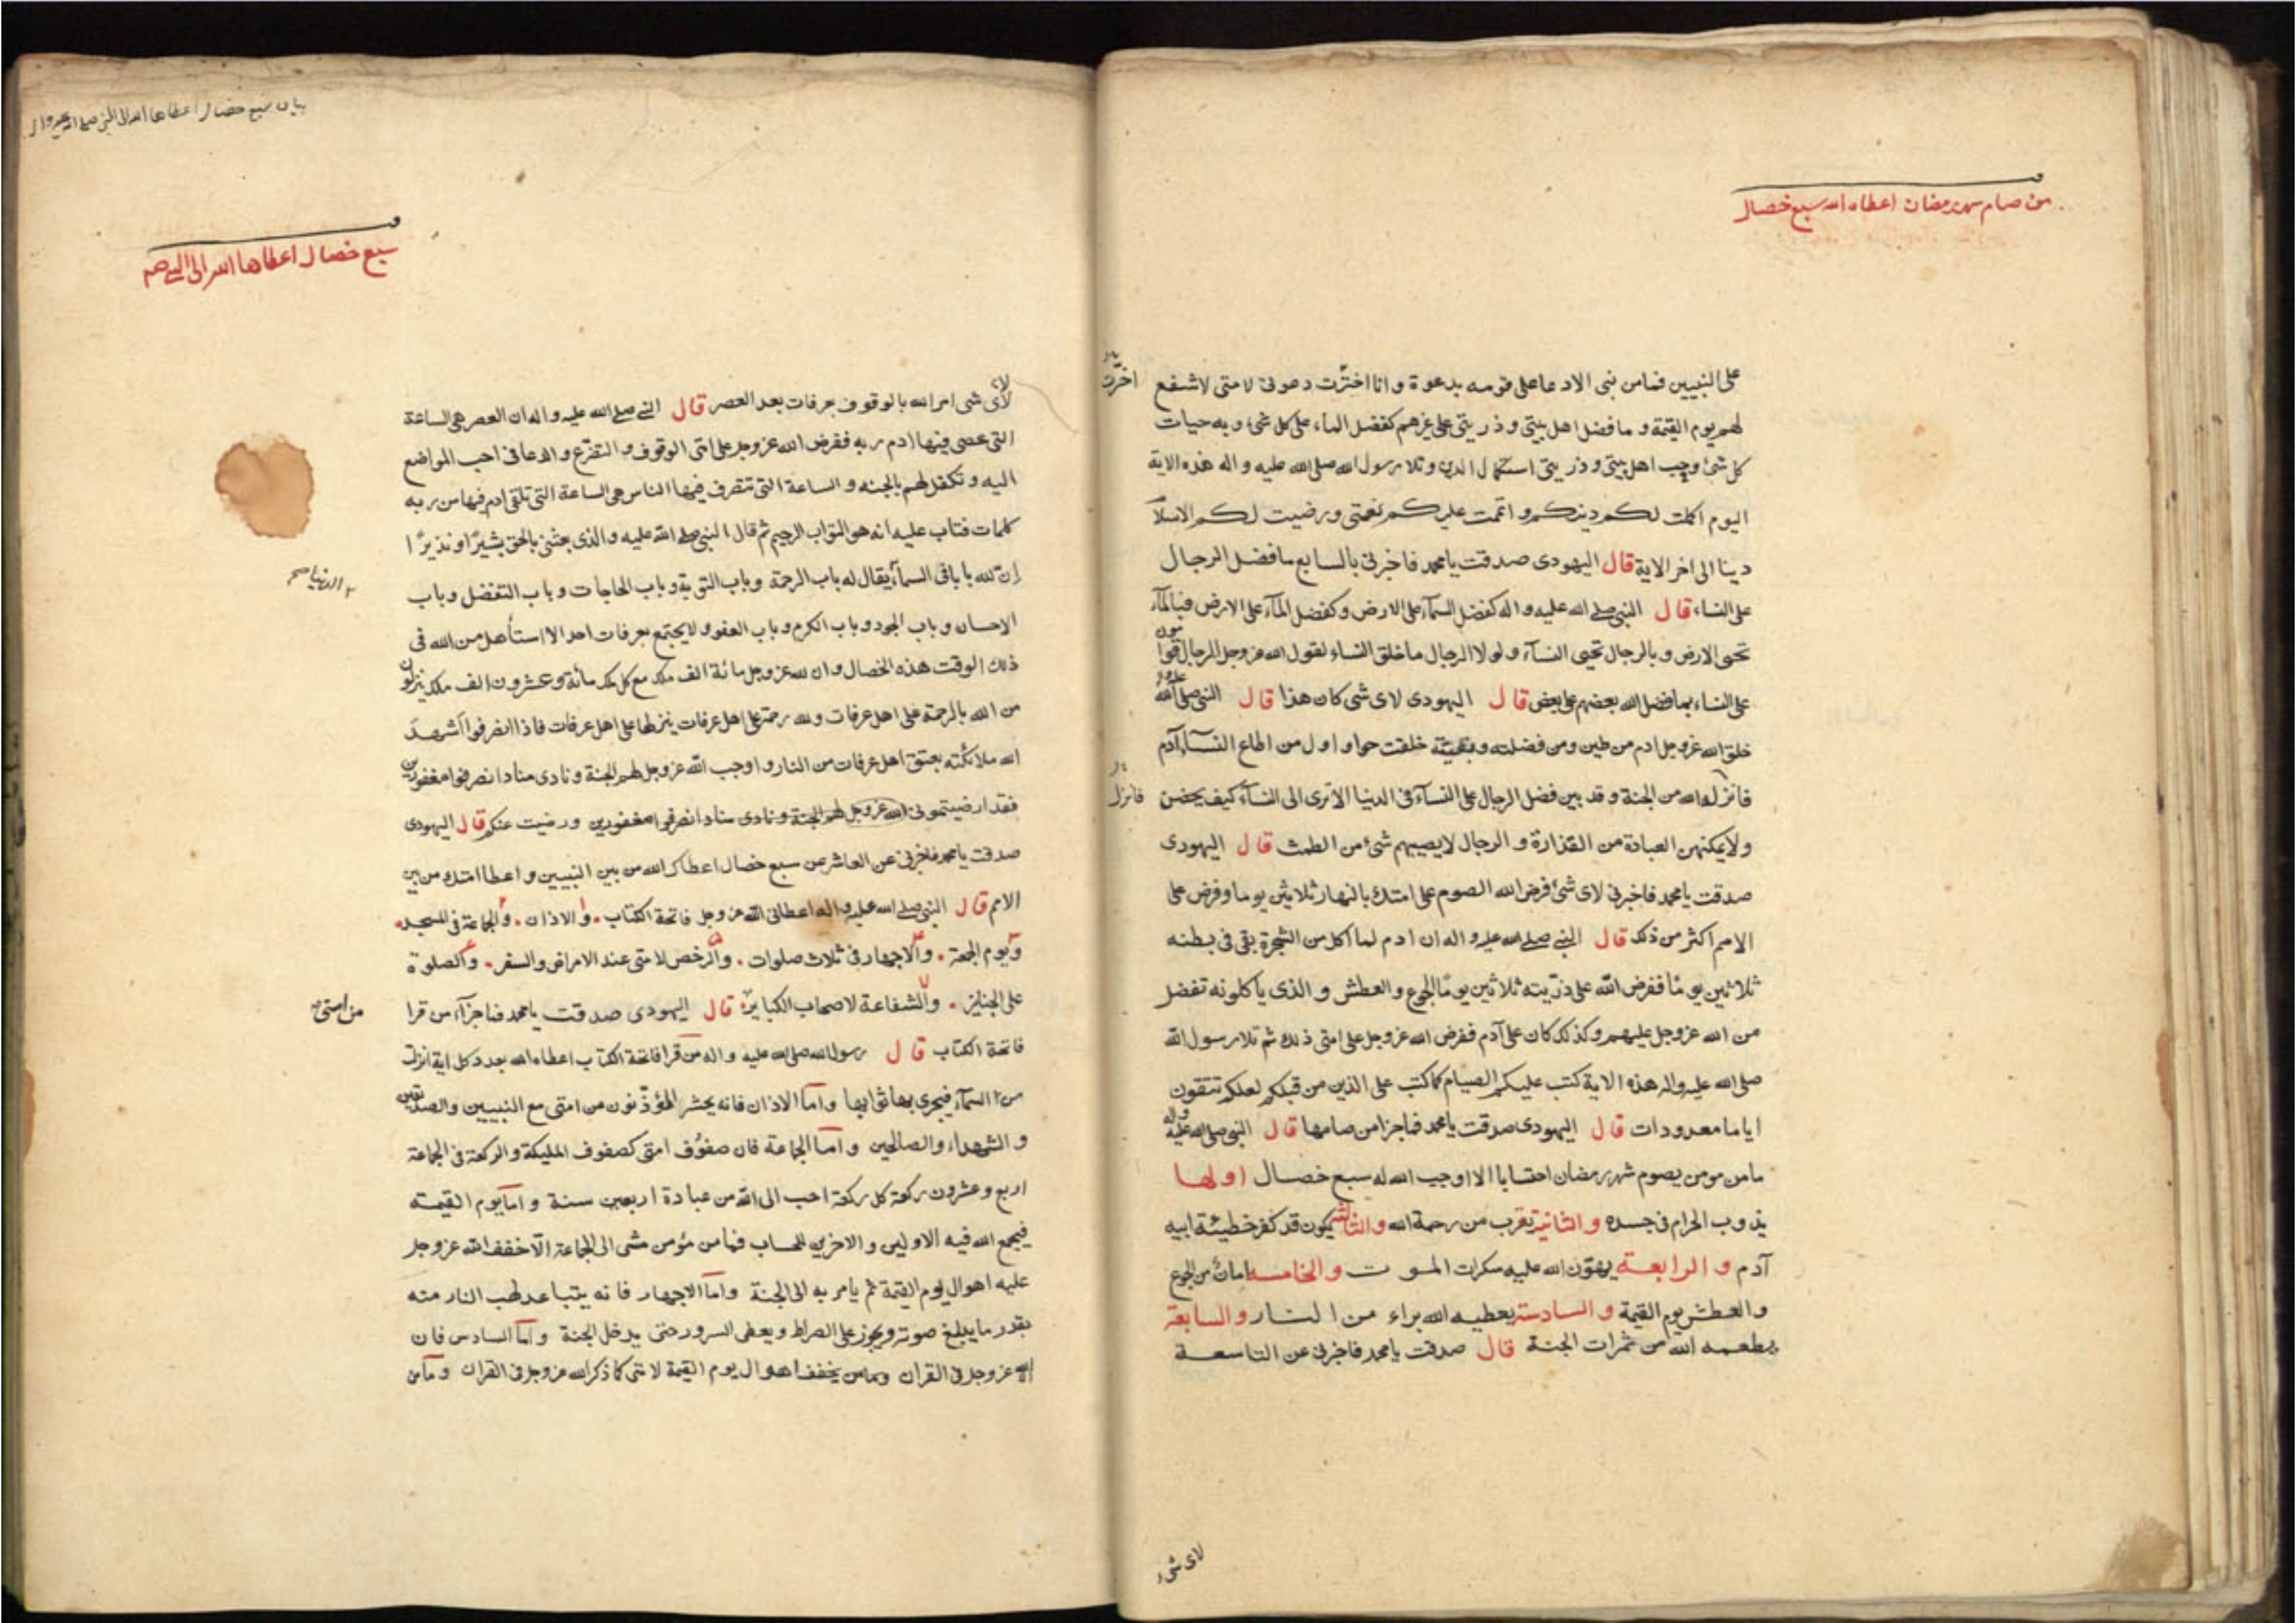 من صام شهر رمضان اعطاه الله سبع خصال
على النبيين فما من نبى الا دعا على قومه بدعوة و انا اخترت دعوتى لامتى لاشفع
اخرت
لهم يوم القيمة و ما فضل اهل بيتى و ذريتى على غيرهم كفضل الماء على كل شئ و به حيات
كل شئ و حب اهل بيتى و ذريتى استكمال الدين و تلا رسول الله صلى الله عليه و اله هذه الاية
اليوم اكملت لكم دينكم و اتممت عليكم نعمتى و رضيت لكم الاسلام
دينا الى اخر الاية قال اليهودى صدقت يا محمد فاخبرنى بالسابع ما فضل الرجال
على النساء قال النبى صلى الله عليه و اله كفضل السمآء على الارض و كفضل المآء على الارض فبالمآء
تحى الارض و بالرجال تحيى النسآء و لولا الرجال ما خلق النساء لقول الله عز وجل الرجال قوامون
على النساء بما فضل الله بعضهم على بعض قال اليهودى لاى شى كان هذا قال النبى صلى الله عليه و اله
خلق الله عز وجل ادم من طين و من فضلته و بقيته خلقت حوا و اول من اطاع النسآء آدم
فانزله الله من الجنة و قد بين فضل الرجال على النسآء فى الدنيا الا ترى الى النسآء كيف يحضن
فانزل
و لا يمكنهن العبادة من القذارة و الرجال لا يصيبهم شئ من الطمث قال اليهودى
صدقت يا محمد فاخبرنى لاى شئ فرض الله الصوم على امتك بالنهار ثلاثين يوما و فرض على
الامم اكثر من ذلك قال النبى صلى الله عليه و اله ان ادم لما اكل من الشجرة بقى فى بطنه
ثلاثين يومًا ففرض الله على ذريته ثلاثين يومًا الجوع و العطش و الذى ياكلونه تفضل
من الله عز وجل عليهم و كذلك كان على آدم ففرض الله عز وجل على امتى ذلك ثم تلا رسول الله
صلى الله عليه و اله هذه الاية كتب عليكم الصيام كما كتب على الذين من قبلكم لعلكم تتقون
اياما معدودات قال اليهودى صدقت يا محمد فما جزا من صامها قال النبى صلى الله عليه و اله
ما من مومن يصوم شهر رمضان احتسابا الا اوجب الله له سبع خصال اولها
يذوب الحرام فى جسده و الثانية يقرب من رحمة الله و الثالثة يكون قد كفر خطيئة ابيه
آدم و الرابعة يهون الله عليه سكرات الموت و الخامسة امان من الجوع
و العطش يوم القيمة و السادسة يعطيه الله براء من النار و السابعة
يطعمه الله من ثمرات الجنة قال صدقت يا محمد فاخبرنى عن التاسعة
لاى شى
بيان سبع خصال اعطاها الله الى النبى صلى الله عليه و اله
سبع خصال اعطاها الله الى النبى صم
لاى شى امر الله بالوقوف بعرفات بعد العصر قال النبى صلى الله عليه و اله ان العصر هى الساعة
التى عصى فيها ادم ربه ففرض الله عز وجل على امتى الوقوف و التضرع و الدعا فى احب المواضع
اليه و تكفل لهم بالجنه و الساعة التى تنصرف فيها الناس هى الساعة التى تلقى ادم فيها من ربه
كلمات فتاب عليه انه هو التواب الرحيم ثم قال النبى صلى الله عليه و الذى بعثنى بالحق بشيرًا و نذيرًا
ان لله بابا فى السمآء يقال له باب الرحمة و باب التوبة و باب الحاجات و باب التفضل و باب
الدنيا صح
الاحسان و باب الجود و باب الكرم و باب العفو و لا يجتمع بعرفات احد الا استأهل من الله فى
ذلك الوقت هذه الخصال و ان لله عز وجل مائة الف ملك مع كل ملك مائة و عشرون الف ملك ينزلون
من الله بالرحمة على اهل عرفات و لله رحمة على اهل عرفات ينزلها على اهل عرفات فاذا انصرفوا اشهد
الله ملائكته بعتق اهل عرفات من النار و اوجب الله عز وجل لهم الجنة و نادى مناد انصرفوا مغفورين
فقد ارضيتمونى الله عز وجل لهم الجنة و نادى مناد انصرفوا مغفورين و رضيت عنكم قال اليهودى
صدقت يا محمد فاخبرنى عن العاشر عن سبع خصال اعطاك الله من بين النبيين و اعطا امتك من بين
الامم قال النبى صلى الله عليه و اله اعطانى الله عز وجل فاتحة الكتاب . و الاذان . و الجماعة فى المسجد .
و يوم الجمعة . و الاجهار فى ثلاث صلوات . و الرخص لامتى عند الامراض و السفر . و الصلوة
على الجنايز . و الشفاعة لاصحاب الكباير قال اليهودى صدقت يا محمد فما جزآء من قرا
من امتى
فاتحة الكتاب قال رسول الله صلى الله عليه و اله من قرا فاتحة الكتاب اعطاه الله بعدد كل اية انزلت
من السمآء فيجرى بها ثوابها و اما الاذان فانه يحشر المؤذنون من امتى مع النبيين و الصديقين
و الشهداء و الصالحين و اما الجماعة فان صفوف امتى كصفوف المليكة و الركعة فى الجماعة
اربع و عشرون ركعة كل ركعة احب الى الله من عبادة اربعين سنة و اما يوم القيمة
فيجمع الله فيه الاولين و الاخرين للحساب فما من مؤمن مشى الى الجماعة الا خفف الله عز وجل
عليه اهوال يوم القيمة ثم يامر به الى الجنة و اما الاجهار فانه يتباعد لهب النار منه
بقدر ما يبلغ صوته و يجوز على الصراط و يعطى السرور حتى يدخل الجنة و اما السادس فان
الله عز وجل فى القران يخفف اهوال يوم القيمة لامتى كما ذكر الله عز وجل فى القران و ما من